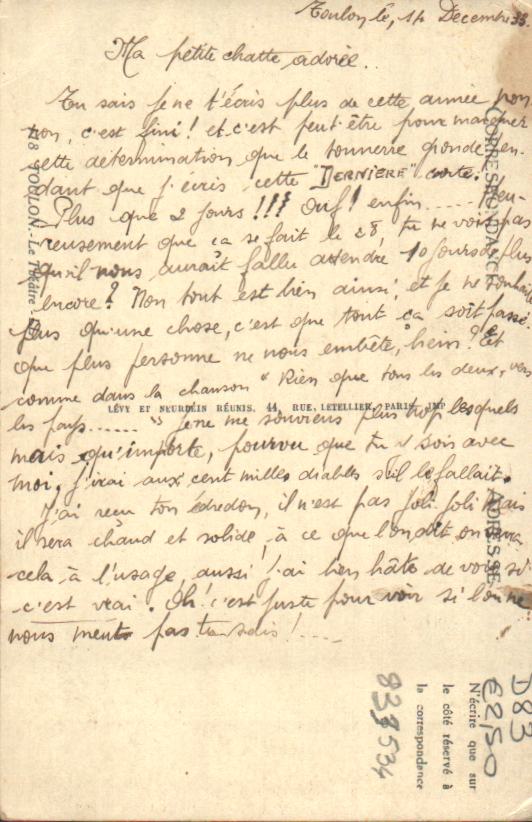 Toulon le, 14 Decembre 33.
Ma petite chatte adorée..
Tu sais je ne t'écris plus de cette année non
non, c'est fini! et c'est peut être pour marquer
cette détermination que le tonnerre gronde pen-
dant que j'écris cette "DERNIÈRE" carte.
Plus que 2 jours!!! Ouf! enfin...... heu-
reusement que ça se fait le 28, tu ne vois pas
qu'il nous aurait fallu attendre 10 jours de plus
encore? Non tout est bien ainsi, et je ne souhaite
plus qu'une chose, c'est que tout ça soit passé
que plus personne ne nous embête, hein? et
comme dans la chanson "Rien que tous les deux, vers
les pays......" je ne me souviens plus trop lesquels
mais qu'importe, pourvu que tu y sois avec
moi, j'irai aux cent milles diables s'il le fallait.
J'ai reçu ton édredon, il n'est pas joli joli mais
il sera chaud et solide, à ce que l'on dit, on verra
cela à l'usage, aussi j'ai bien hâte de voir si
c'est vrai. Oh! c'est juste pour voir si l'on ne
nous ment pas tu sais!....
118 TOULON. - Le Théâtre
CORRESPONDANCE
ADRESSE
LÉVY ET NEURDEIN RÉUNIS, 44, RUE LETELLIER, PARIS IMP
N'écrire que sur
le côté réservé à
la correspondance
D83
€2,50